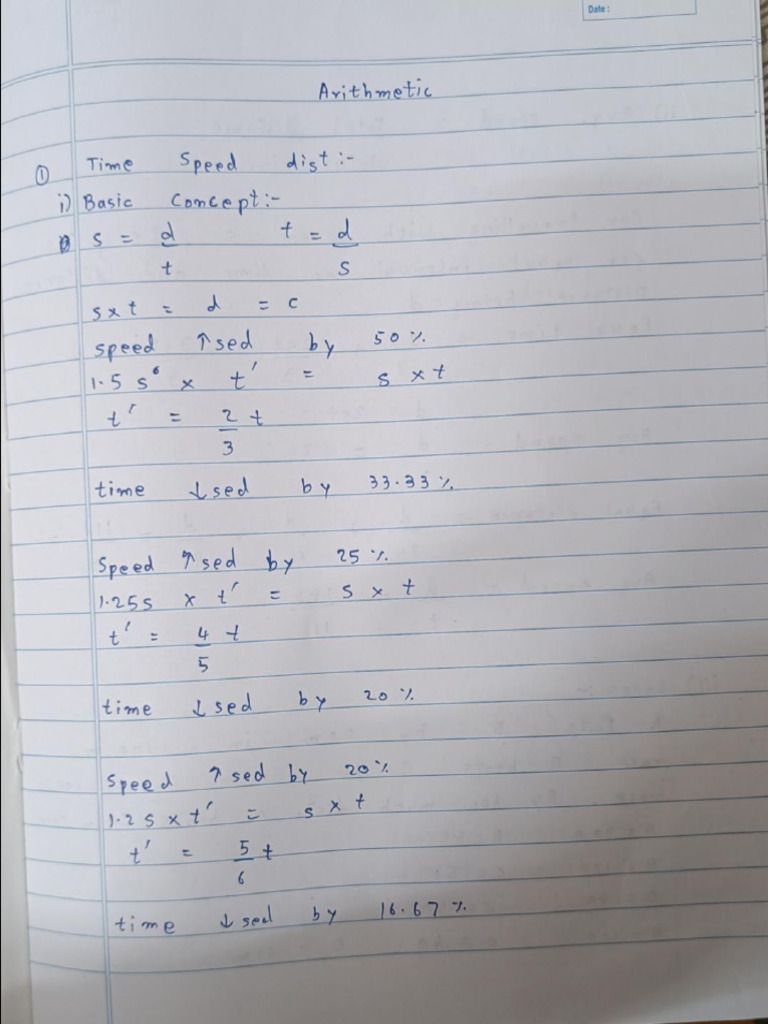 Date:
Arithmetic
① Time Speed dist:-
i) Basic Concept:-
s = d/t t = d/s
s x t = d = c
speed ↑sed by 50%
1.5 s x t' = s x t
t' = 2/3 t
time ↓sed by 33.33%
Speed ↑sed by 25%
1.25s x t' = s x t
t' = 4/5 t
time ↓sed by 20%
Speed ↑sed by 20%
1.2 s x t' = s x t
t' = 5/6 t
time ↓sed by 16.67%